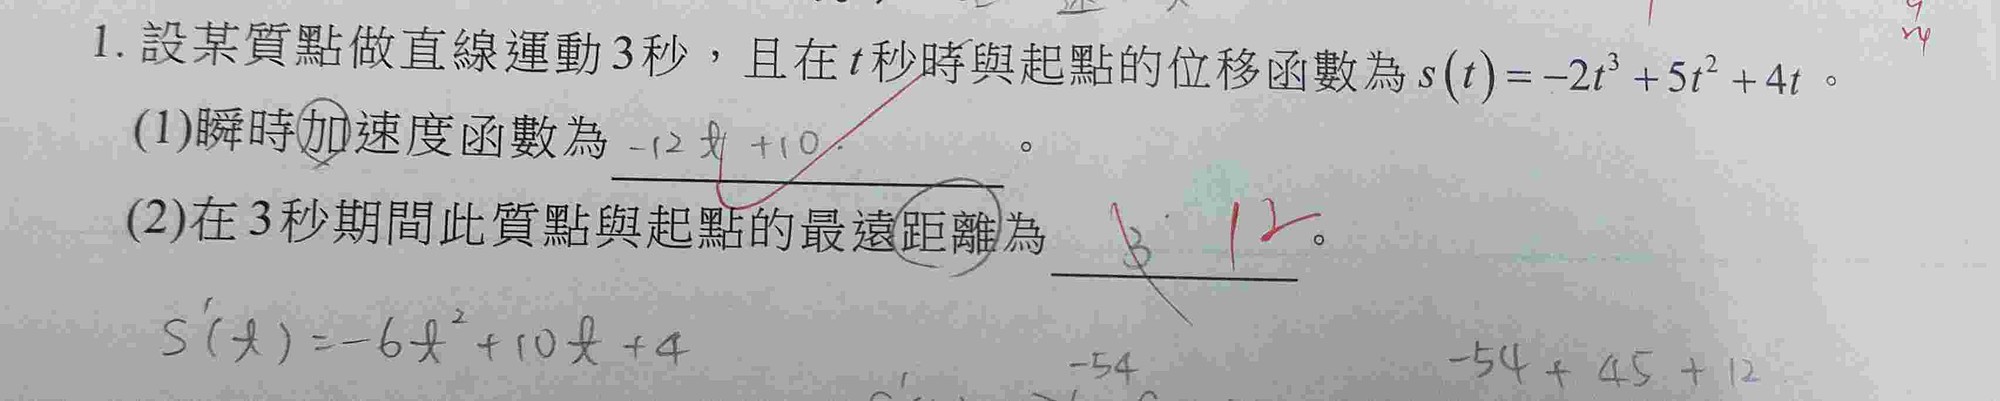 1. 設某質點做直線運動3秒，且在t秒時與起點的位移函數為 s(t) = −2t³ + 5t² + 4t 。
(1)瞬時加速度函數為 -12t +10 。
(2)在3秒期間此質點與起點的最遠距離為 3 12 。
S'(t) = -6t² + 10t + 4
-54
-54 + 45 + 12